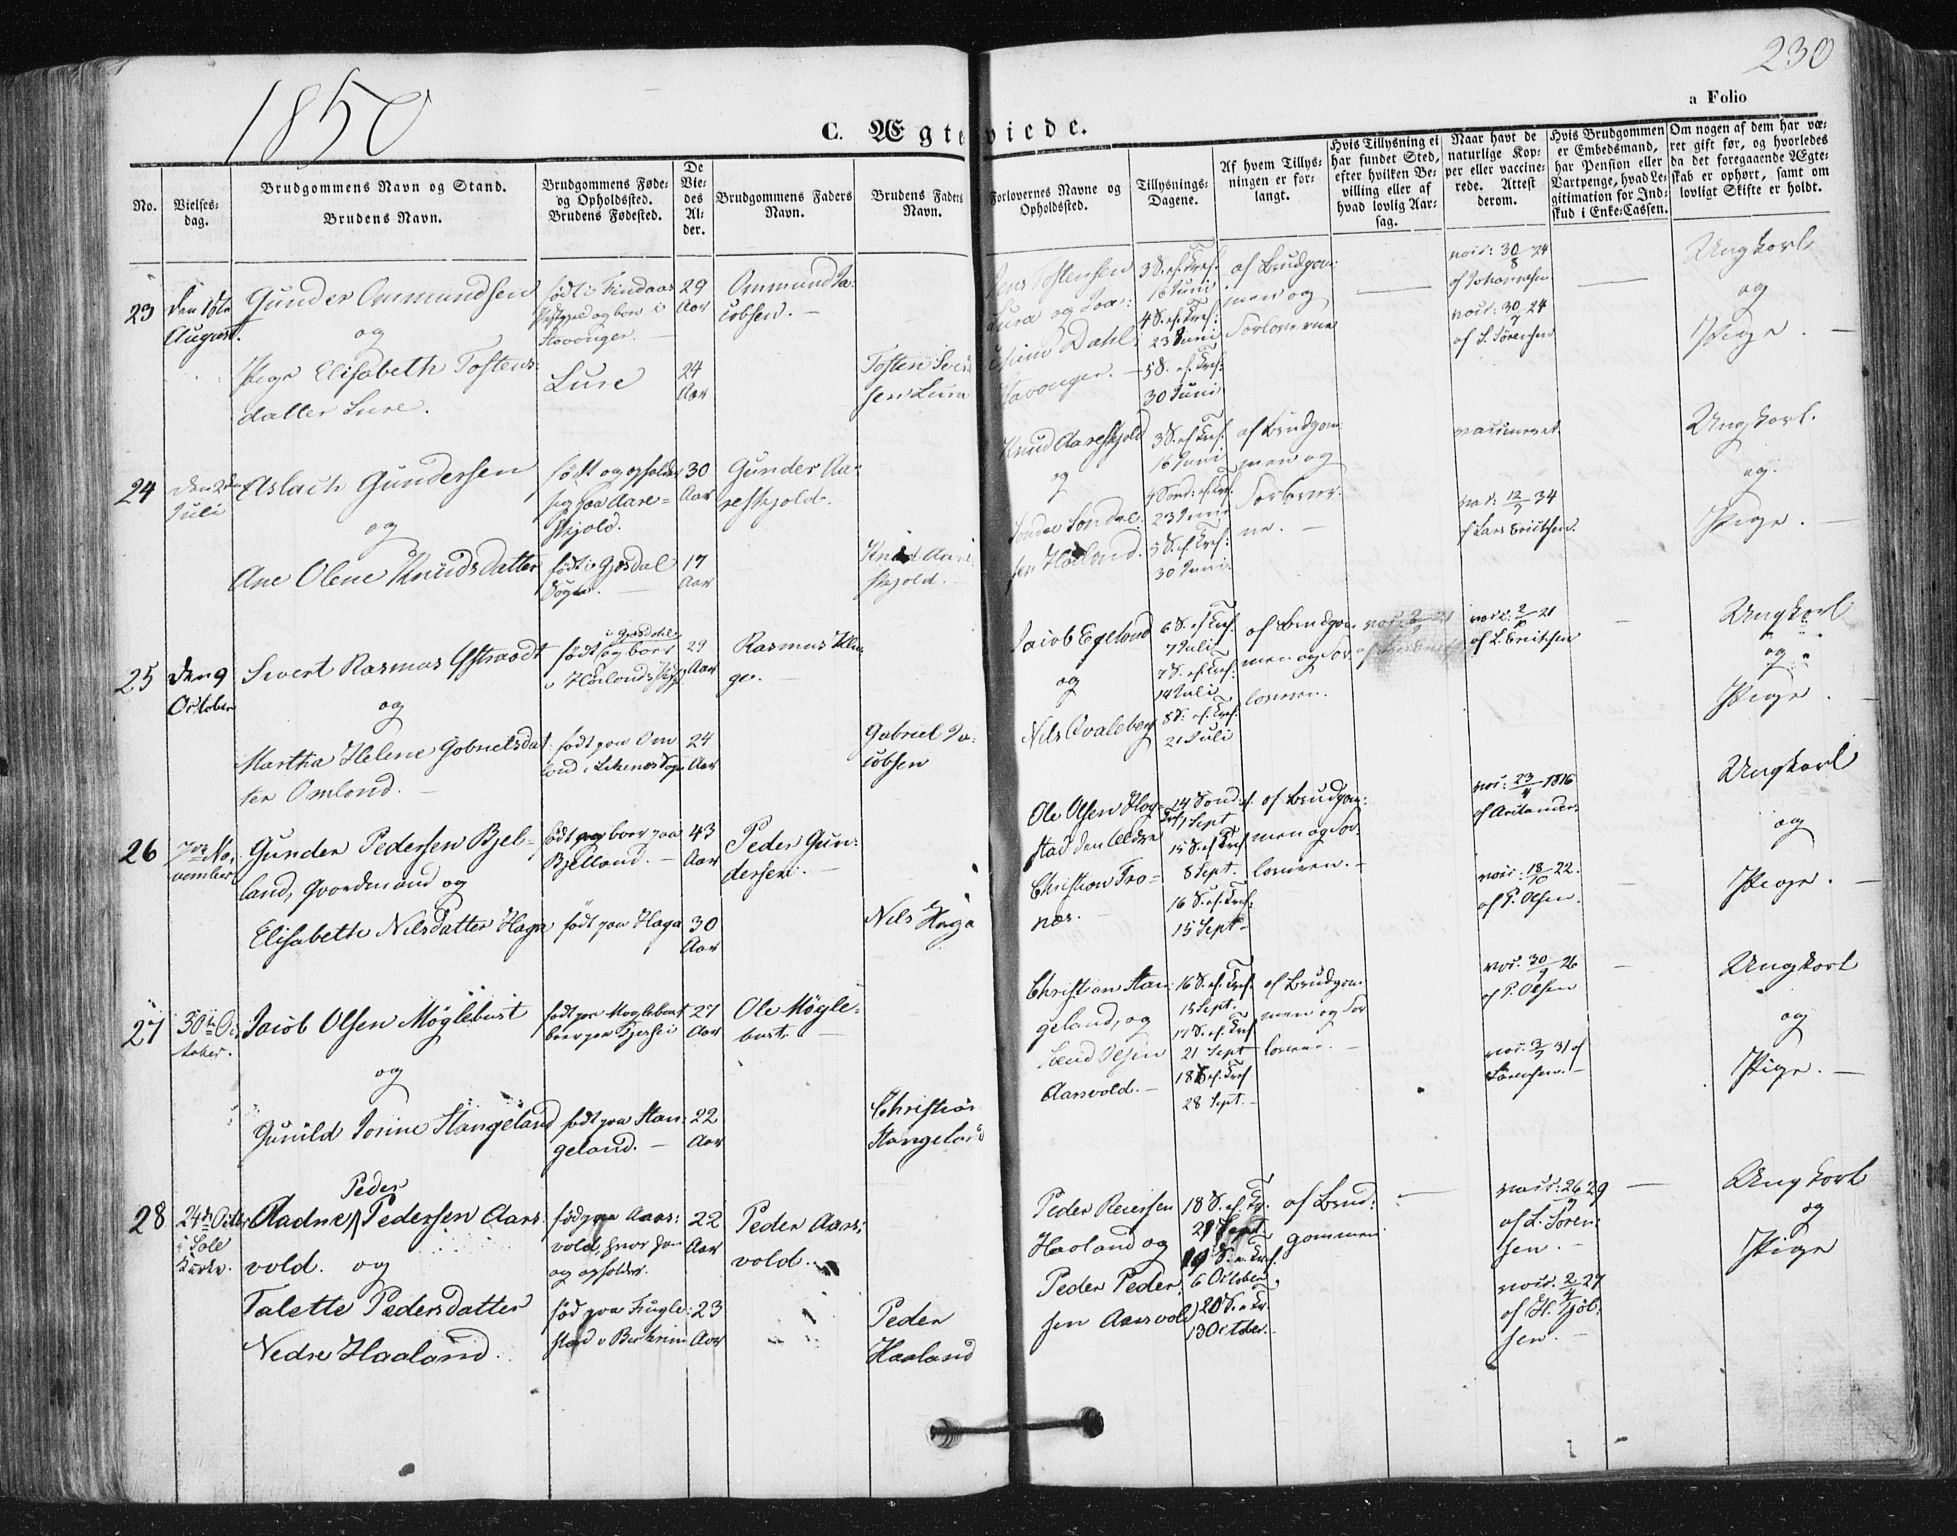 1850
230
a Folio
C. Ægteviede.
No.
Vielses-
dag.
Brudgommens Navn og Stand.
Brudens Navn.
Brudgommens Føde-
og Opholdsted.
Brudens Fødested.
De
Vie-
des
Al-
der.
Brudgommens Faders
Navn.
Brudens Faders
Navn.
Forlovernes Navne og
Opholdssted.
Tillysnings-
Dagene.
Af hvem Tillys-
ningen er for-
langt.
Hvis Tillysning ei
har fundet Sted,
efter hvilken Be-
villing eller af
hvad lovlig Aar-
sag.
Naar havt de
naturlige Kop-
per eller vaccine-
rede. Attest
derom.
Hvis Brudgommen
er Embedsmand,
har Pension eller
Vartpenge, hvad Le-
gitimation for Ind-
skud i Enke-Cassen.
Om nogen af dem har væ-
ret gift før, og hvorledes
da det foregaaende Ægte-
skab er ophørt, samt om
lovligt Skifte er holdt.
23
August.
Gunder Ommundsen
og
Pige Elisabeth Tostens-
datter Lure.
Lure
29
Aar
24
Aar
Ommund Ja-
cobsen.
3 S. ef. Tref.
16 Juni
4 S. ef. Tref.
23 Juni
5 S. ef. Tref.
30 Juni
af Brudgom-
men og
Forloverne
vacc: 30/8 24
af Johannesen
vacc: 30/7 24
af L. Sørensen
Ungkarl
og
Pige.
24
Juli
Aslach Gundersen
og
Ane Olene Knudsdatter
født og opholder
sig paa Aare-
skjold.
født i Gjesdal
Sogn.
30
Aar
17
Aar
Gunder Aa-
reskjold.
Knud Aare-
skjold.
Knud Aareskjold
og
3 S. ef. Tref.
16 Juni
23 Juni
5 S. ef. Tref.
30 Juni
af Brudgom-
men og
Forlover-
ne.
vaccineret.
vac: 12/7 34
af Lars Erichsen.
Ungkarl.
og.
Pige.
25
den 9
October
Sivert Rasmus Ystraadt
og
Martha Helene Gabrielsdat-
ter Omlond.
29
Aar
24
Aar
Rasmus
Gabriel Ja-
cobsen
Jacob Egeland
og
Nils Qvaleberg
6 S. ef. Tref.
7 Juli
7 S. ef. Tref.
14 Juli
8 S. ef. Tref.
21 Juli
af Brudgom-
men og For-
loveren.
af L. Erichsen
Ungkarl
og
Pige.
26
Gunder Pedersen Bjel-
land, Gvardmand og
Elisabeth Nilsdatter Haga
født og boer paa
Bjelland.
født paa Haga
43
Aar
30
Aar
Peder Gun-
dersen.
Nils Haga
Ole Olsen Hog-
stad den Ældre
Christian Tro-
næs.
14 Sond. ef.
Tref. 1 Sept
15 S. ef. Tref
8 Sept.
16 S. ef. Tref.
15 Sept
af Brudgom-
men og For-
loveren.
vacc: 23/4 1816
vacc: 18/10 22.
af P. Olsen.
Ungkarl
og
Pige.
27
30te Oc-
tober.
Jacob Olsen Møglebust
og
Gunild Josine Stangeland
født paa Moglebust
født paa Stan-
geland.
27
Aar
22
Aar
Ole Møgle-
bust
Christian
Stangeland
Christian Stan-
geland, og
Aarsvold.
16 S. ef. Tref.
15 Sept.
17 S. ef. Tref
21 Sept
18 S. ef. Tref
28 Sept.
af Brudgom-
men og For-
loveren.
vacc. 30/9 26
af P. Olsen
Sørensen.
Ungkarl
og
Pige.
28
24de Octbr
i Sole
Kirke.
Peder
Aadne Pedersen Aars-
vold. og
Talette Pedersdatter
Nedre Haaland.
fød paa Aars-
vold, hvor han
og opholder.
fød paa Fugle-
stad i Birkrim
22
Aar
23
Aar
Peder Aars-
vold.
Peder
Haaland
Peder Reiersen
Haaland og
Peder Peder-
sen Aarsvold
18 S. ef. Tr.
29 Sept.
19 S. e. Tref.
6 October,
20 S. e. Tr.
13 October.
af Brud-
gommen
vacc: 26/9 29
af L. Sören-
sen.
vacc. 2/4 27
Ungkarl
og
Pige